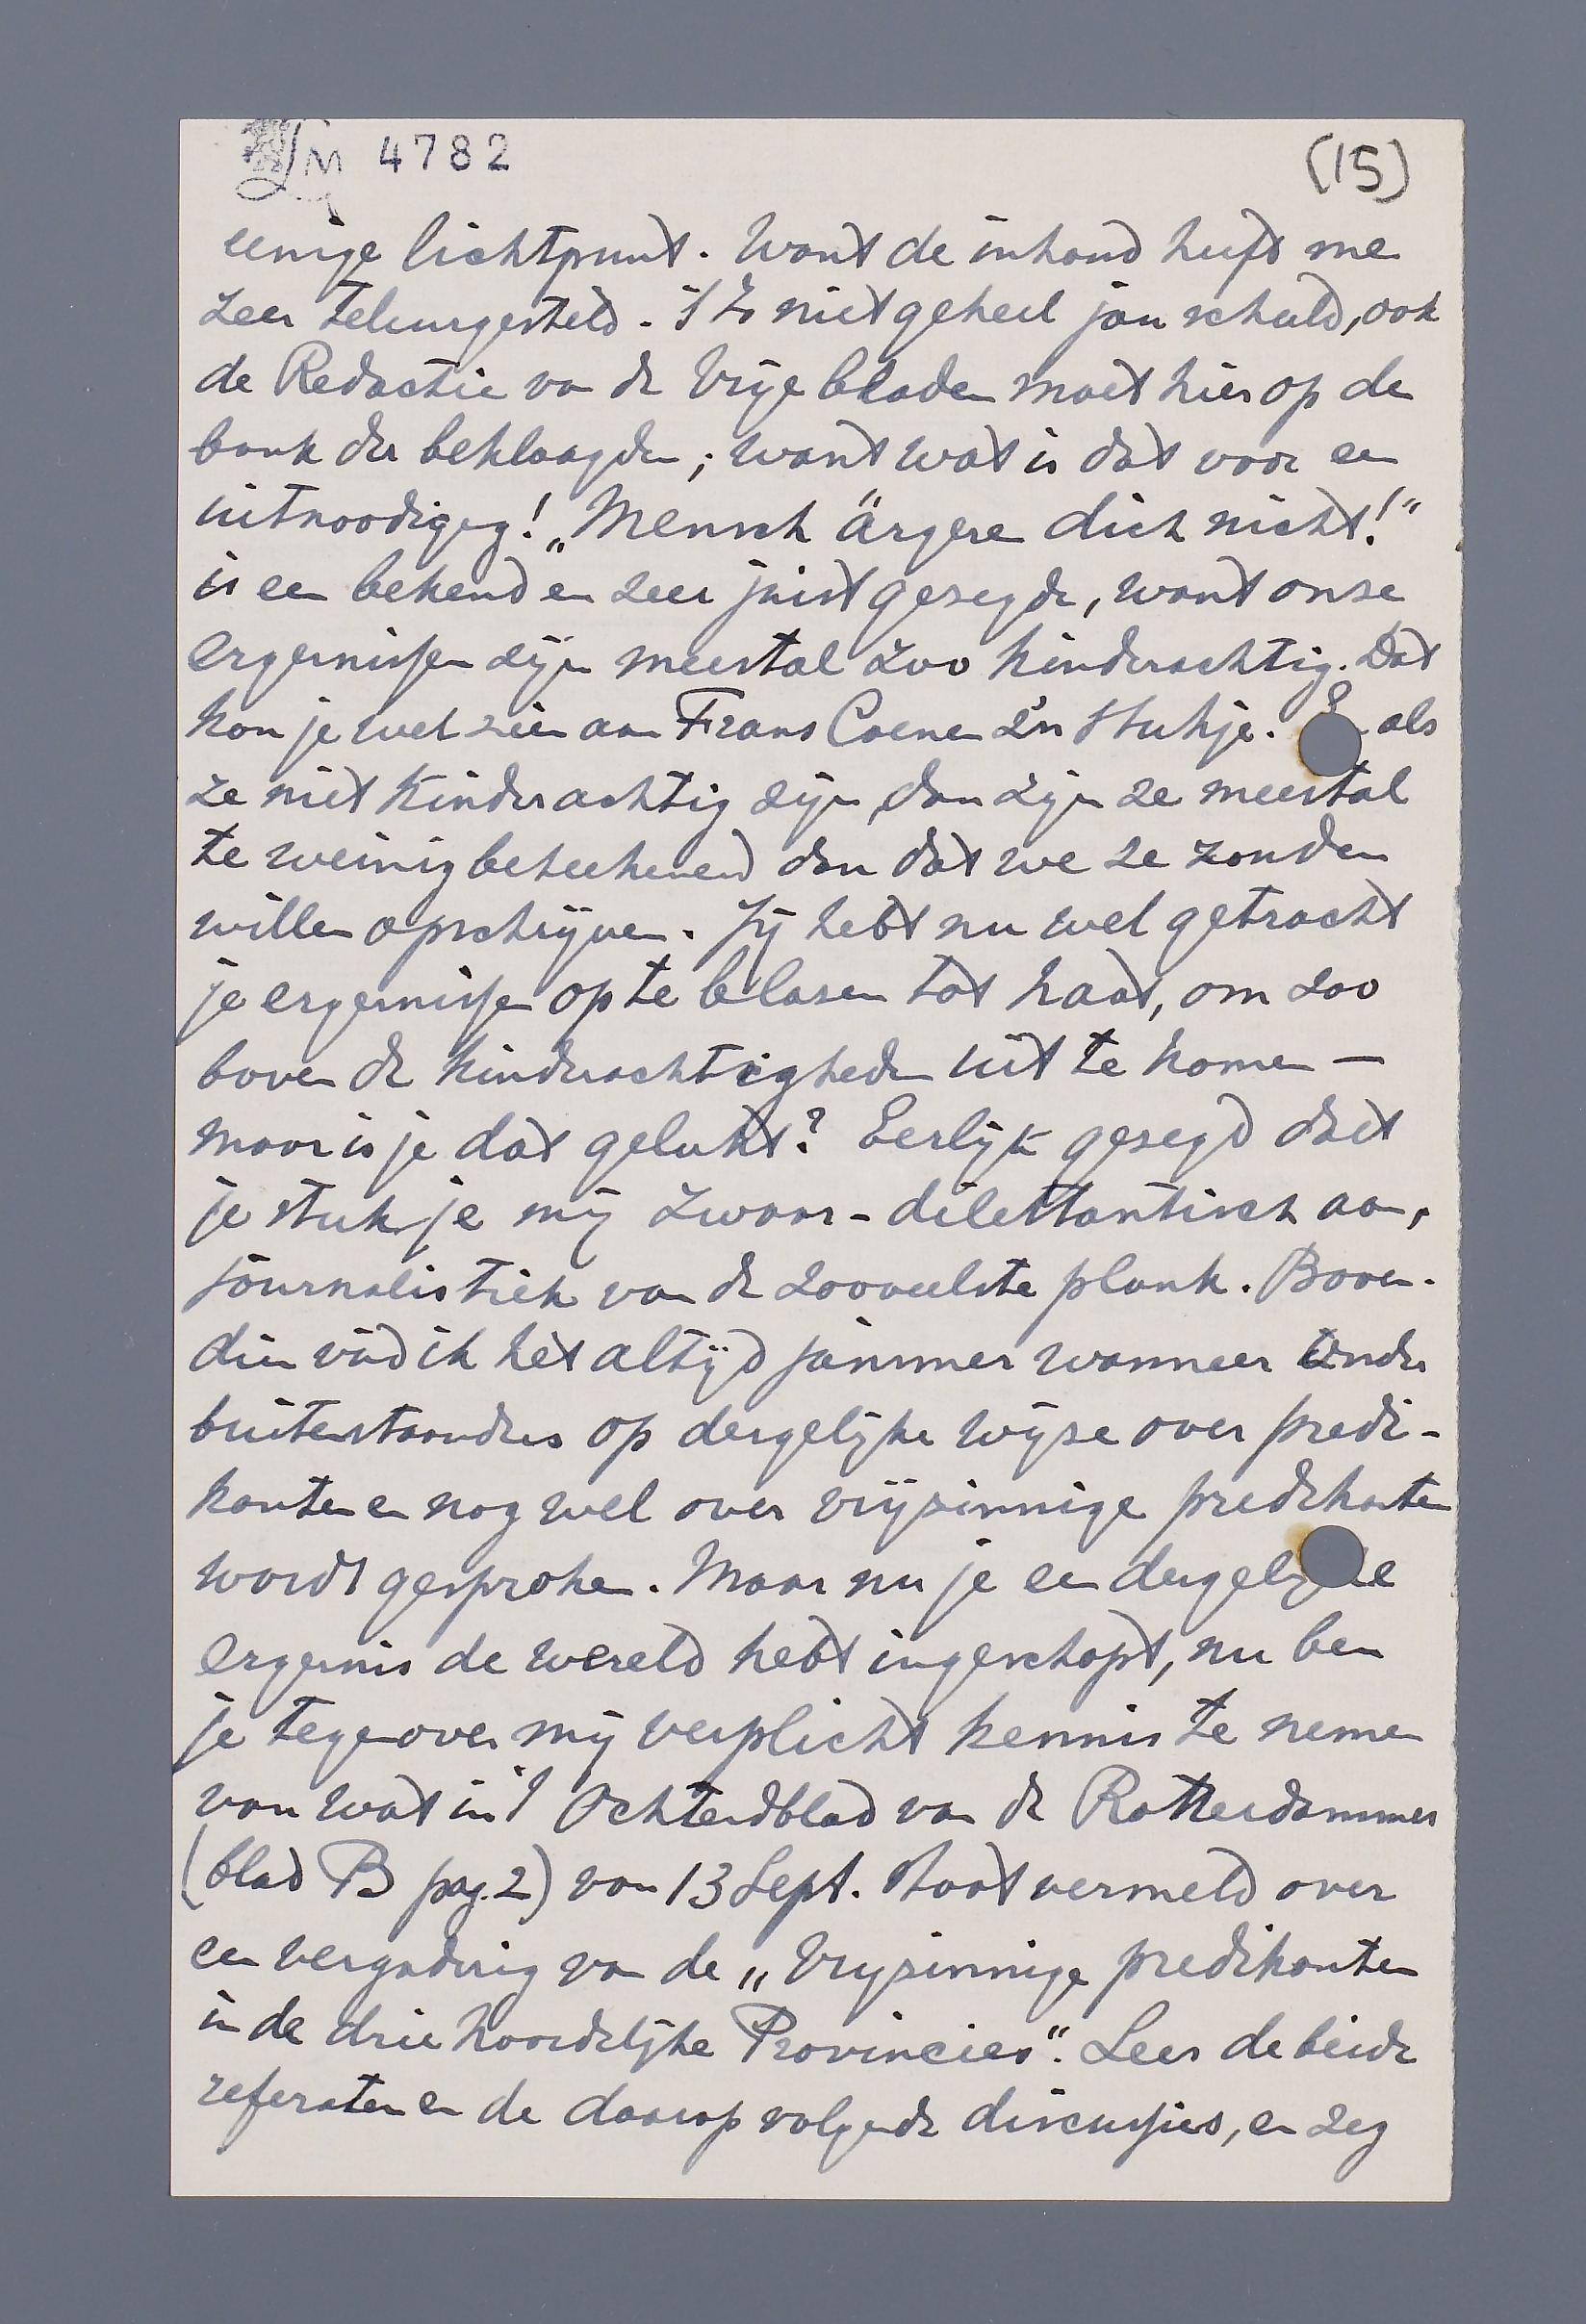 LM 4782 (15)
eenige lichtpunt. Want de inhoud heeft me
zeer teleurgesteld. 't Is niet geheel jou schuld, ook
de Redactie van de Vrije bladen moet hier op de
bank der beklaagden; want wat is dat voor een
uitnoodiging! „Mensch ärgere dich nicht!"
is een bekend en zeer juist gezegde, want onze
ergernissen zijn meestal zoo kinderachtig. Dat
kon je wel zien aan Frans Coenen z'n stukje. En als
ze niet kinderachtig zijn, dan zijn ze meestal
te weinig beteekenend dan dat we ze zouden
willen opschrijven. Jij hebt nu wel getracht
je ergernissen op te blazen tot haat, om zoo
boven de kinderachtigheden uit te komen —
maar is je dat gelukt? Eerlijk gezegd doet
je stukje mij zwaar-dilettantisch aan,
journalistiek van de zooveelste plank. Boven-
dien vind ik het altijd jammer wanneer onder
buitenstaanders op dergelijke wijze over predi-
kanten en nog wel over vrijzinnige predikanten
wordt gesproken. Maar nu je een dergelijke
ergernis de wereld hebt ingeschopt, nu ben
je tegenover mij verplicht kennis te nemen
van wat in 't Ochtendblad van de Rotterdammer
(blad B pag. 2) van 13 Sept. staat vermeld over
een vergadering van de „Vrijzinnige predikanten
in de drie Noordelijke Provincies". Lees de beide
referaten en de daarop volgende discussies, en zeg